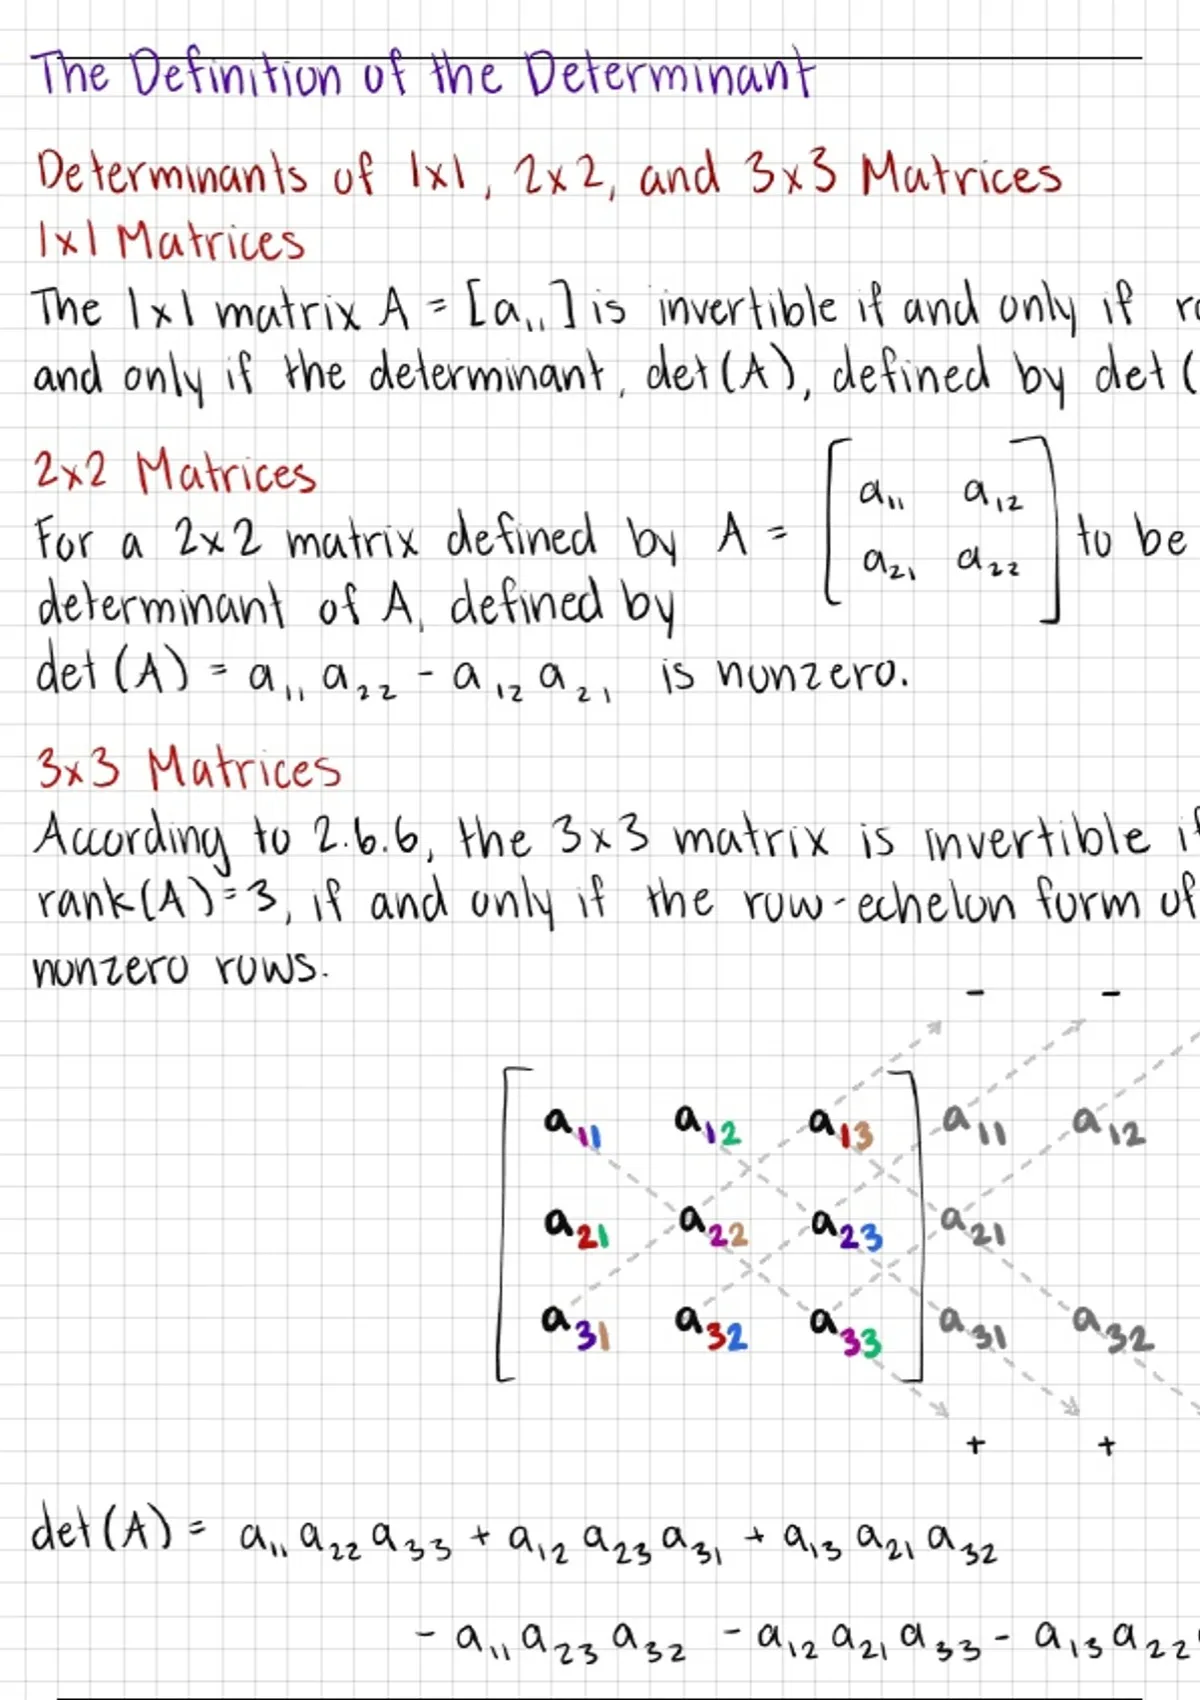 The Definition of the Determinant
Determinants of 1x1, 2x2, and 3x3 Matrices
1x1 Matrices
The 1x1 matrix A = [a₁₁] is invertible if and only if
and only if the determinant, det(A), defined by det(
2x2 Matrices
For a 2x2 matrix defined by A = [a₁₁ a₁₂
a₂₁ a₂₂] to be
determinant of A, defined by
det(A) = a₁₁ a₂₂ - a₁₂ a₂₁ is nonzero.
3x3 Matrices
According to 2.6.6, the 3x3 matrix is invertible if
rank(A)=3, if and only if the row-echelon form of
nonzero rows.
- -
a₁₁ a₁₂ a₁₃ a₁₁ a₁₂
a₂₁ a₂₂ a₂₃ a₂₁
a₃₁ a₃₂ a₃₃ a₃₁ a₃₂
+ +
det(A) = a₁₁ a₂₂ a₃₃ + a₁₂ a₂₃ a₃₁ + a₁₃ a₂₁ a₃₂
- a₁₁ a₂₃ a₃₂ - a₁₂ a₂₁ a₃₃ - a₁₃ a₂₂